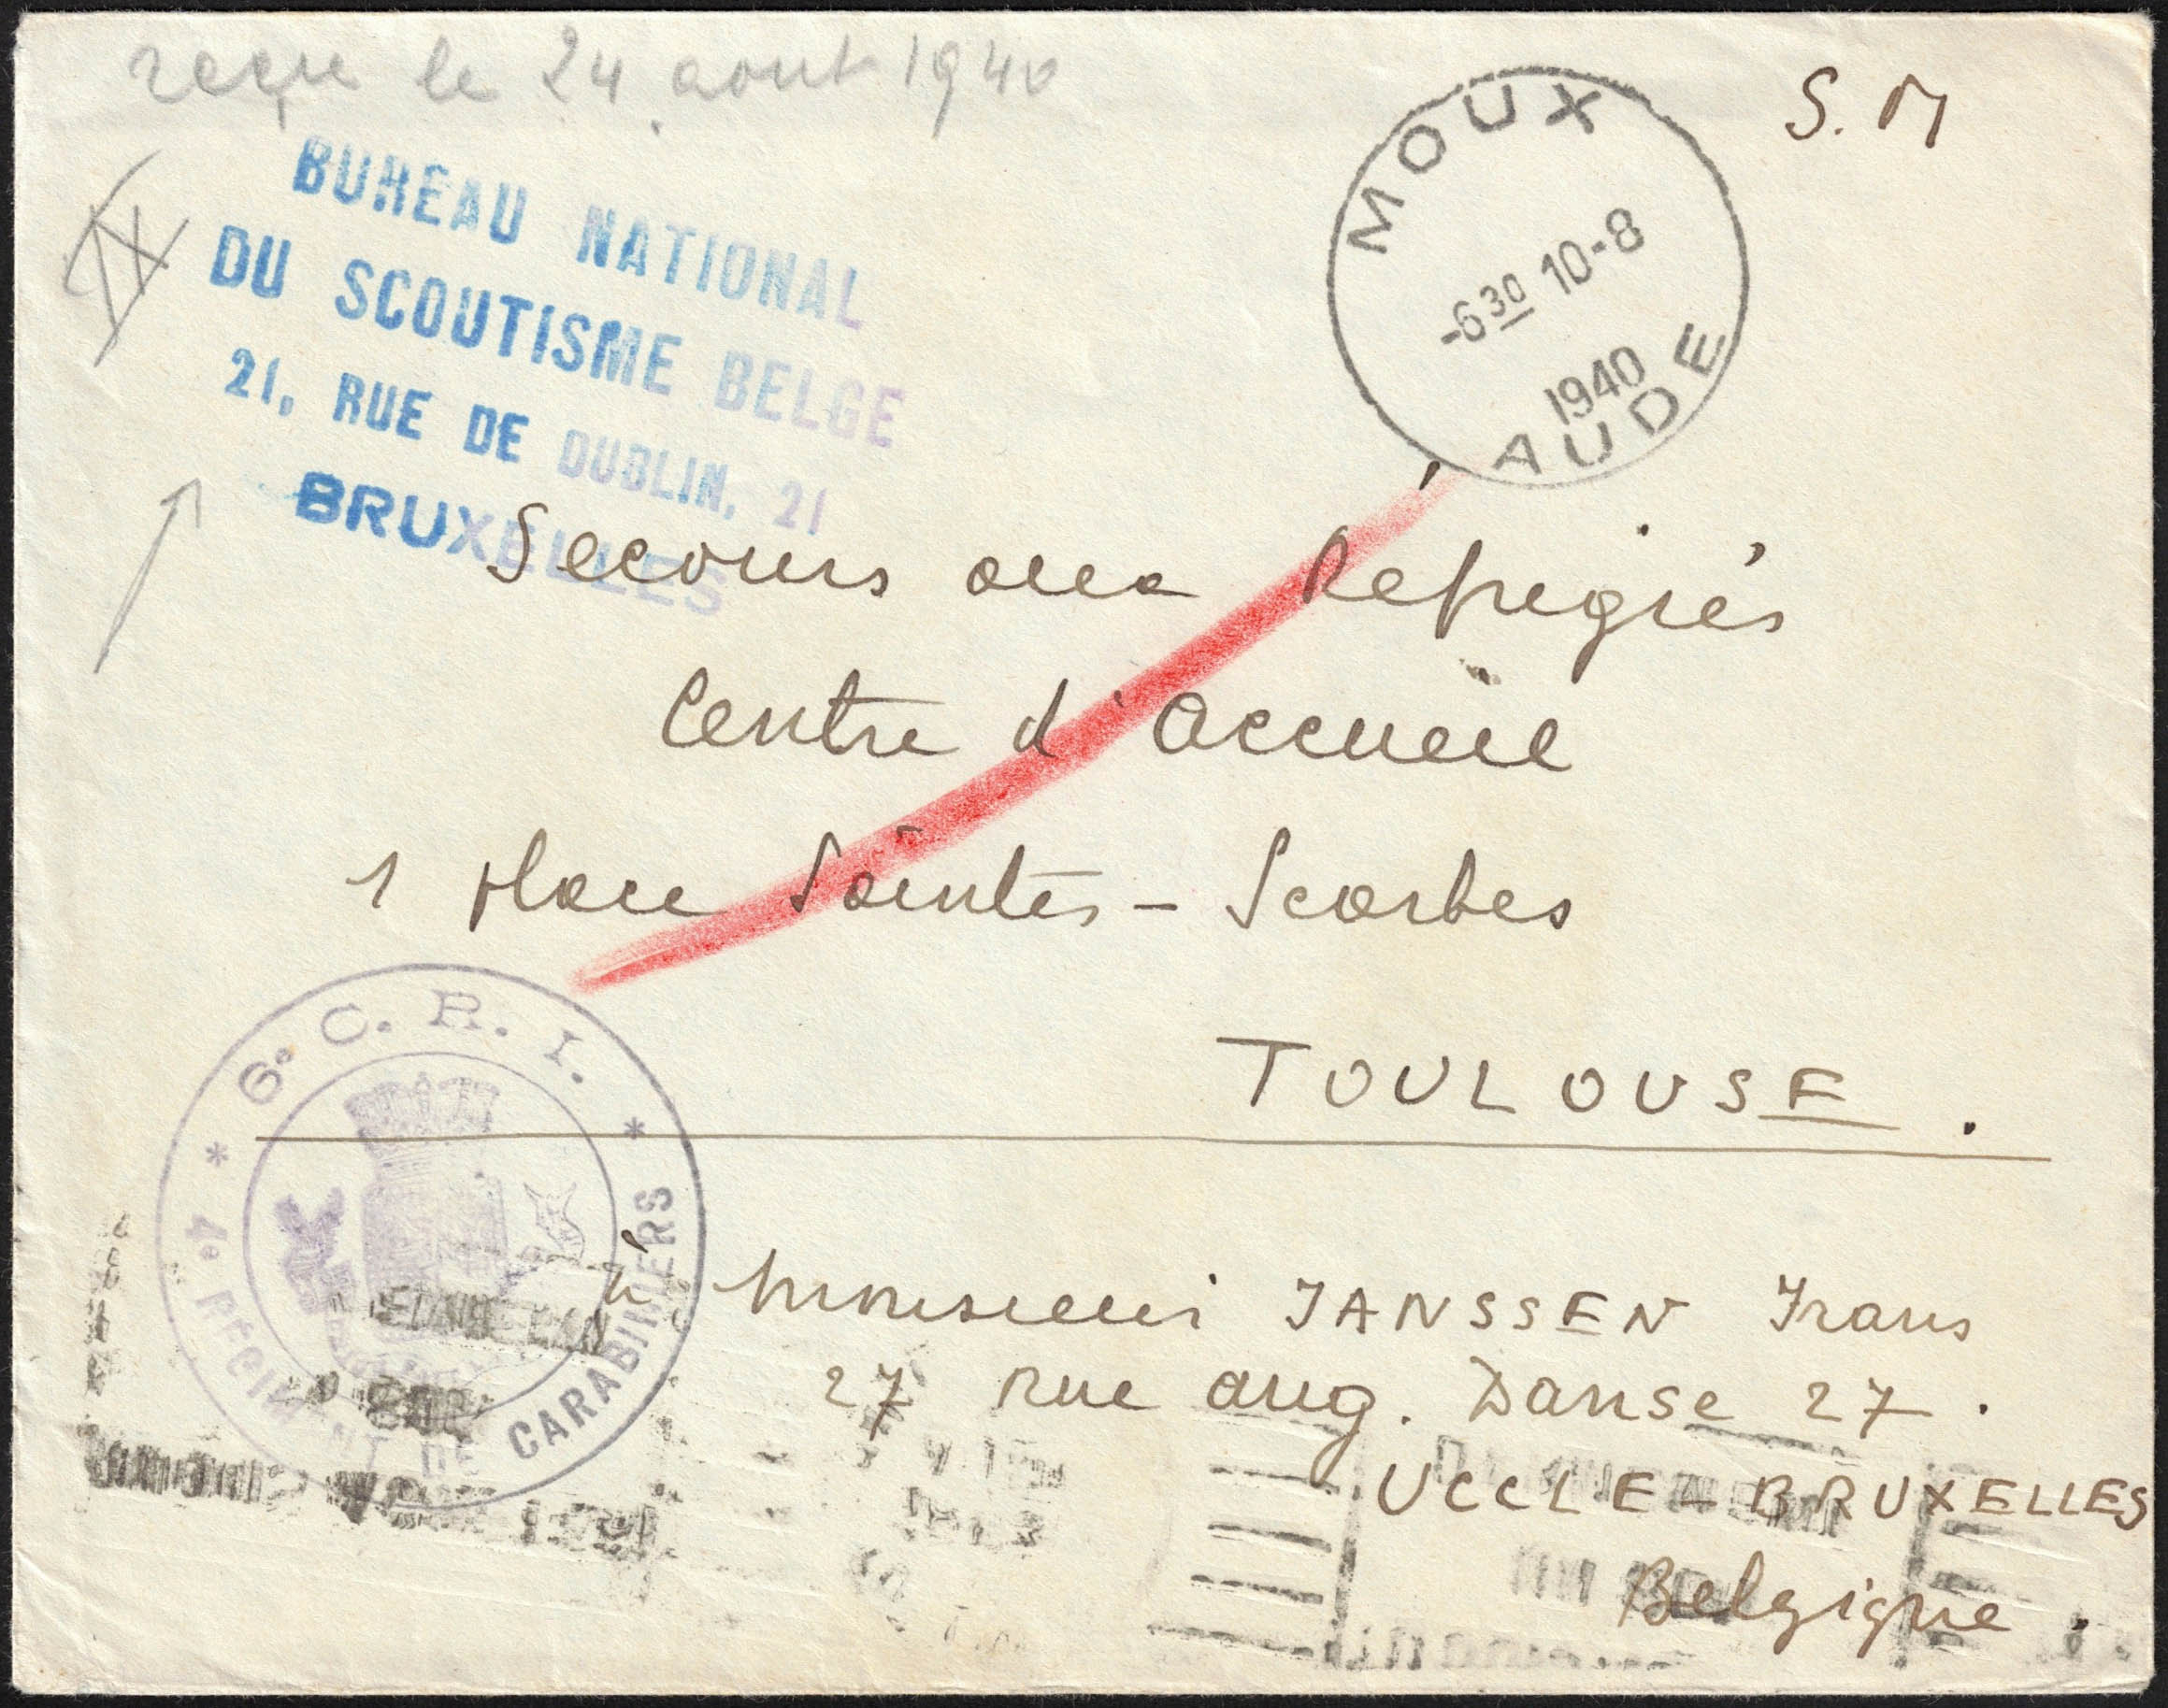 reçu le 24 aout 1940
S. M
MOUX
-6 30 10-8
1940
AUDE
BUREAU NATIONAL
DU SCOUTISME BELGE
21, RUE DE DUBLIN, 21
BRUXELLES
Secours aux Refugiés
Centre d'Accueil
1 Place Saintes-Scarbes
TOULOUSE.
6e C. R. I.
* 4e RÉGIMENT DE CARABINIERS *
à Monsieur JANSSEN Frans
27 rue aug. Danse 27.
UCCLE-BRUXELLES
Belgique.